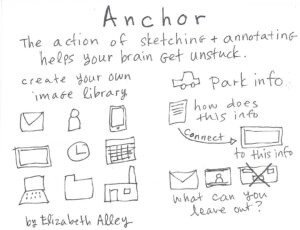 Anchor
The action of sketching + annotating
helps your brain get unstuck.
create your own
image library
Park info
how does
this info
Connect
to this info
what can you
leave out?
by Elizabeth Alley